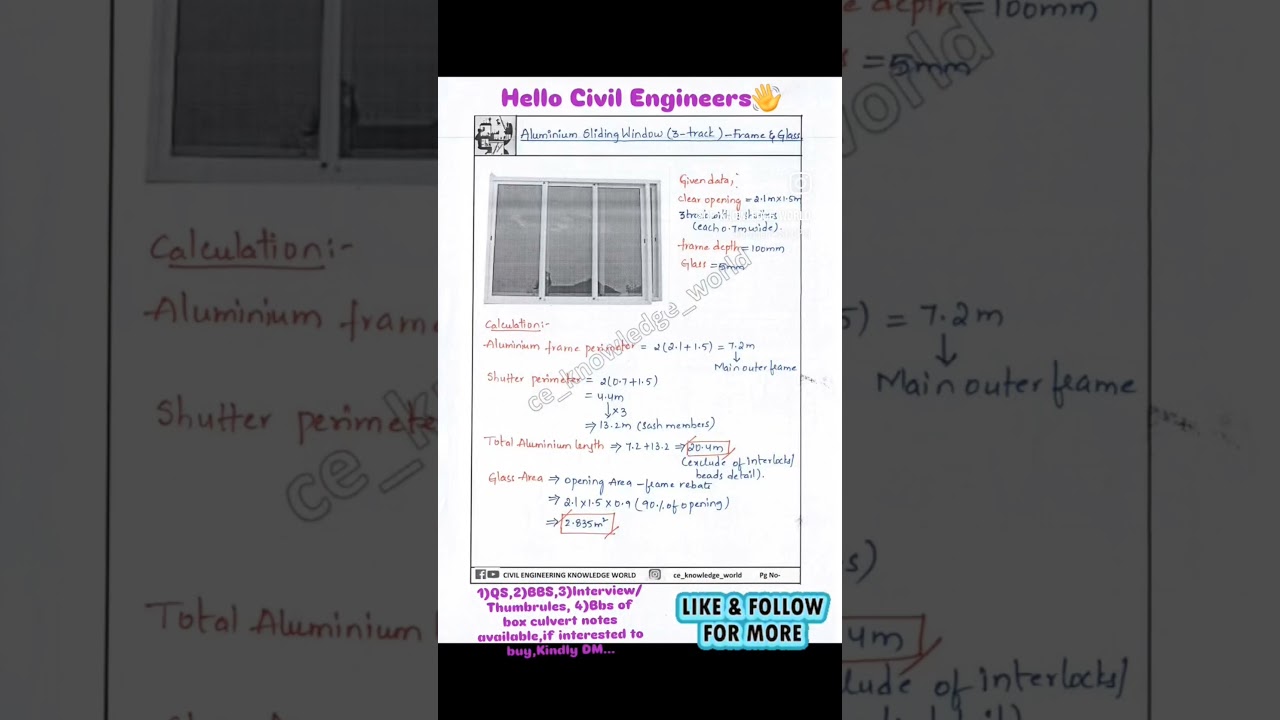 Hello Civil Engineers👋
Aluminium Sliding Window (3-track) - Frame & Glass.
Given data,:
clear opening = 2.1m x 1.5m
3 track with 3 shutters
(each 0.7m wide).
frame depth = 100mm
Glass = 5mm
Calculation:-
Aluminium frame perimeter = 2(2.1+1.5) = 7.2m
↓
Main outer frame
Shutter perimeter = 2(0.7+1.5)
= 4.4m
↓×3
⇒ 13.2m (Sash members)
Total Aluminium length ⇒ 7.2+13.2 ⇒ 20.4m
(exclude of Interlocks/
beads detail).
Glass Area ⇒ opening Area - frame rebate
⇒ 2.1×1.5×0.9 (90% of opening)
⇒ 2.835m²
ce_knowledge_world
CIVIL ENGINEERING KNOWLEDGE WORLD ce_knowledge_world Pg No-
1)QS,2)BBS,3)Interview/
Thumbrules, 4)Bbs of
box culvert notes
available,if interested to
buy,Kindly DM...
LIKE & FOLLOW
FOR MORE
depth = 100mm
= 5mm
world
Calculation:-
Aluminium frame
5) = 7.2m
↓
Main outer frame
Shutter perimeter
ce_k
s)
Total Aluminium
4m
lude of Interlocks/